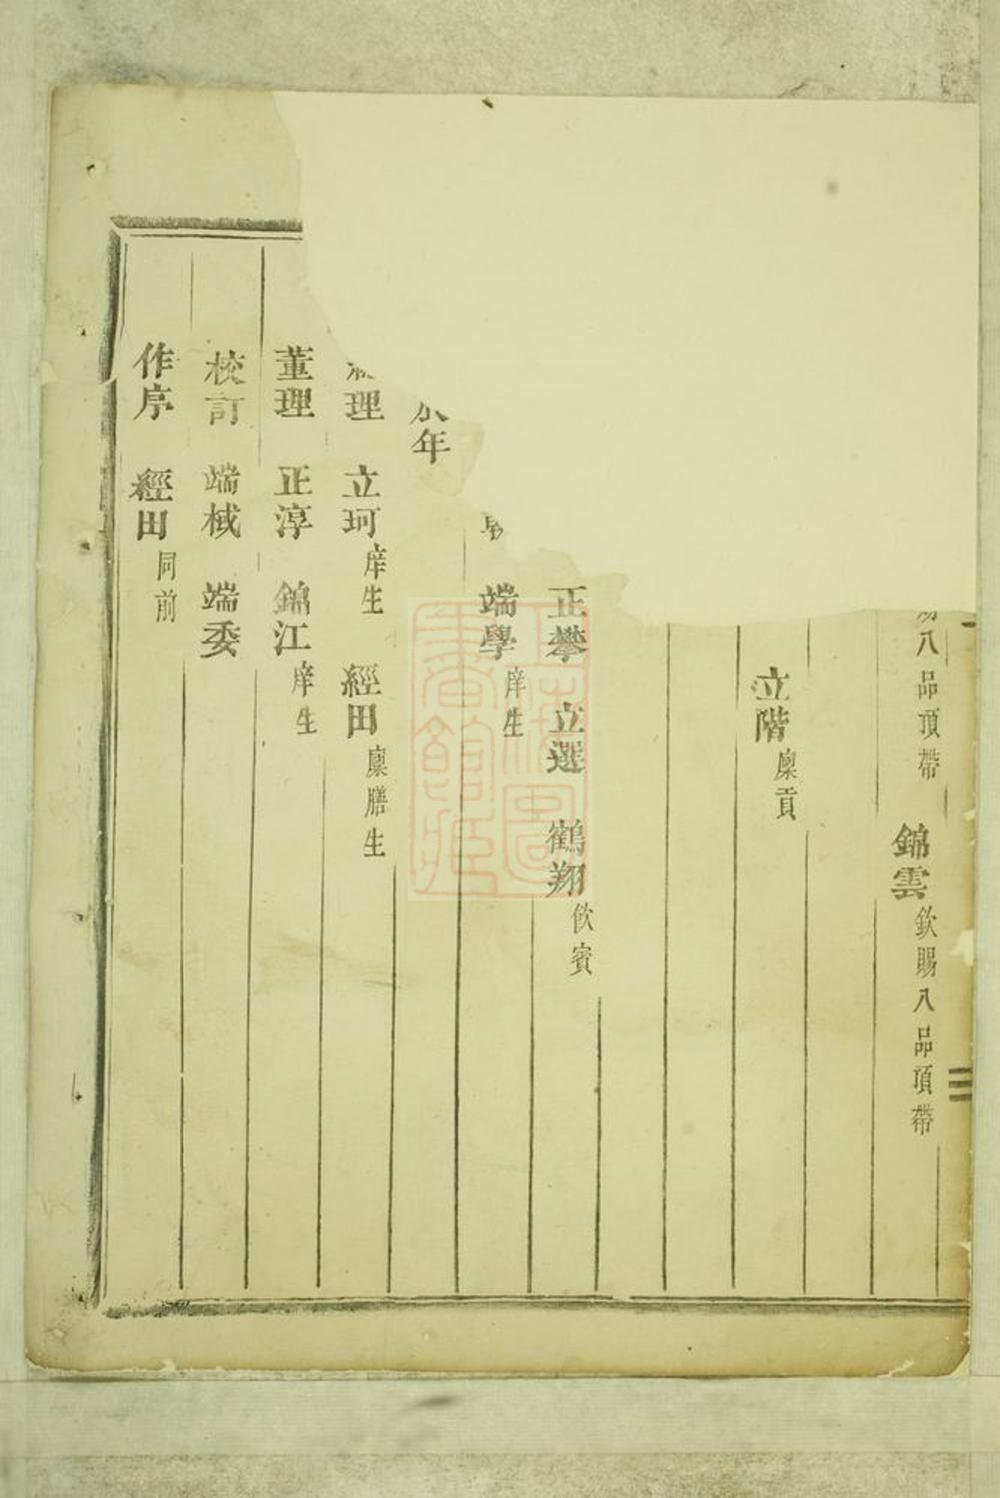 八品頂帶 錦雲欽賜八品頂帶
立階廩貢
正攀 立選 鶴翔飲賓
端學庠生
年
理 立珂庠生 經田廩膳生
董理 正淳 錦江庠生
校訂 端棫 端委
作序 經田同前